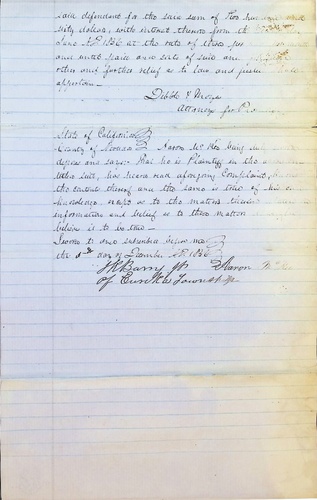 said defendant for the said sum of Two hundred and
sixty dollars, with interest thereon from the
June A.D. 1856 at the rate of three per
and until paid and costs of suit and
other and further relief as to law and justice
appertain.
Dibble &
Attorneys for
State of California
County of Nevada Aaron Mc being
deposes and says: that he is Plaintiff in the above
suit, has heard read aforegoing Complaint,
the contents thereof and the same is true of his own
knowledge, except as to the matters therein
information and belief as to those matters
belief is to be true.
Sworn to and subscribed before me
the 5th day of December A.D. 1856
Barry JP Aaron
of Township